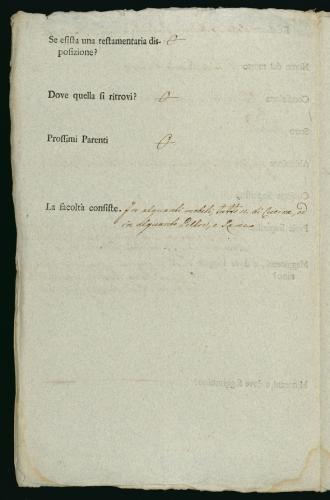 Se esista una testamentaria dis- 0
posizione?
Dove quella si ritrovi? 0
Prossimi Parenti 0
La facoltà consiste. In alquanti mobili, tutto di Cucina, ed
in alquanto e Rame